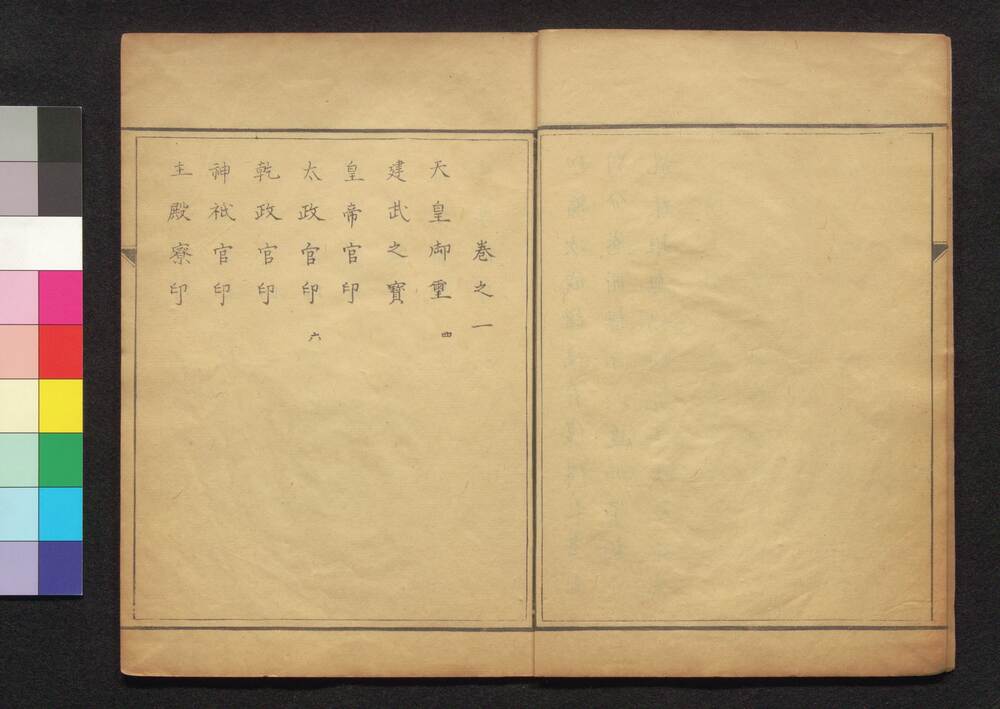 巻之一
天皇御璽 四
建武之寶
皇帝官印
太政官印 六
乾政官印
神祇官印
主殿寮印